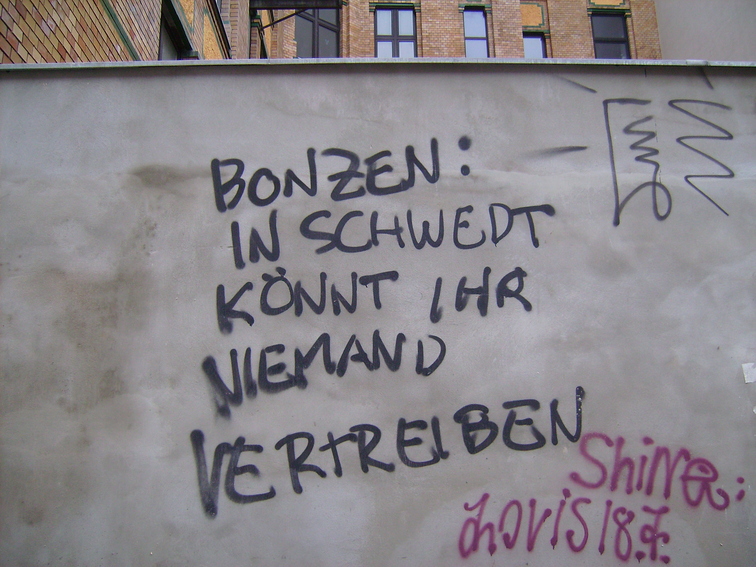 BONZEN:
IN SCHWEDT
KÖNNT IHR
NIEMAND
VERTREIBEN